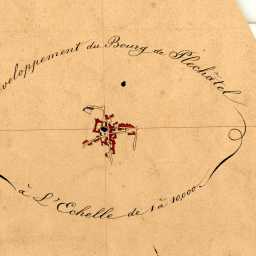 veloppement du Bourg de Pléchâtel
à L'Echelle de 1 à 10,000.